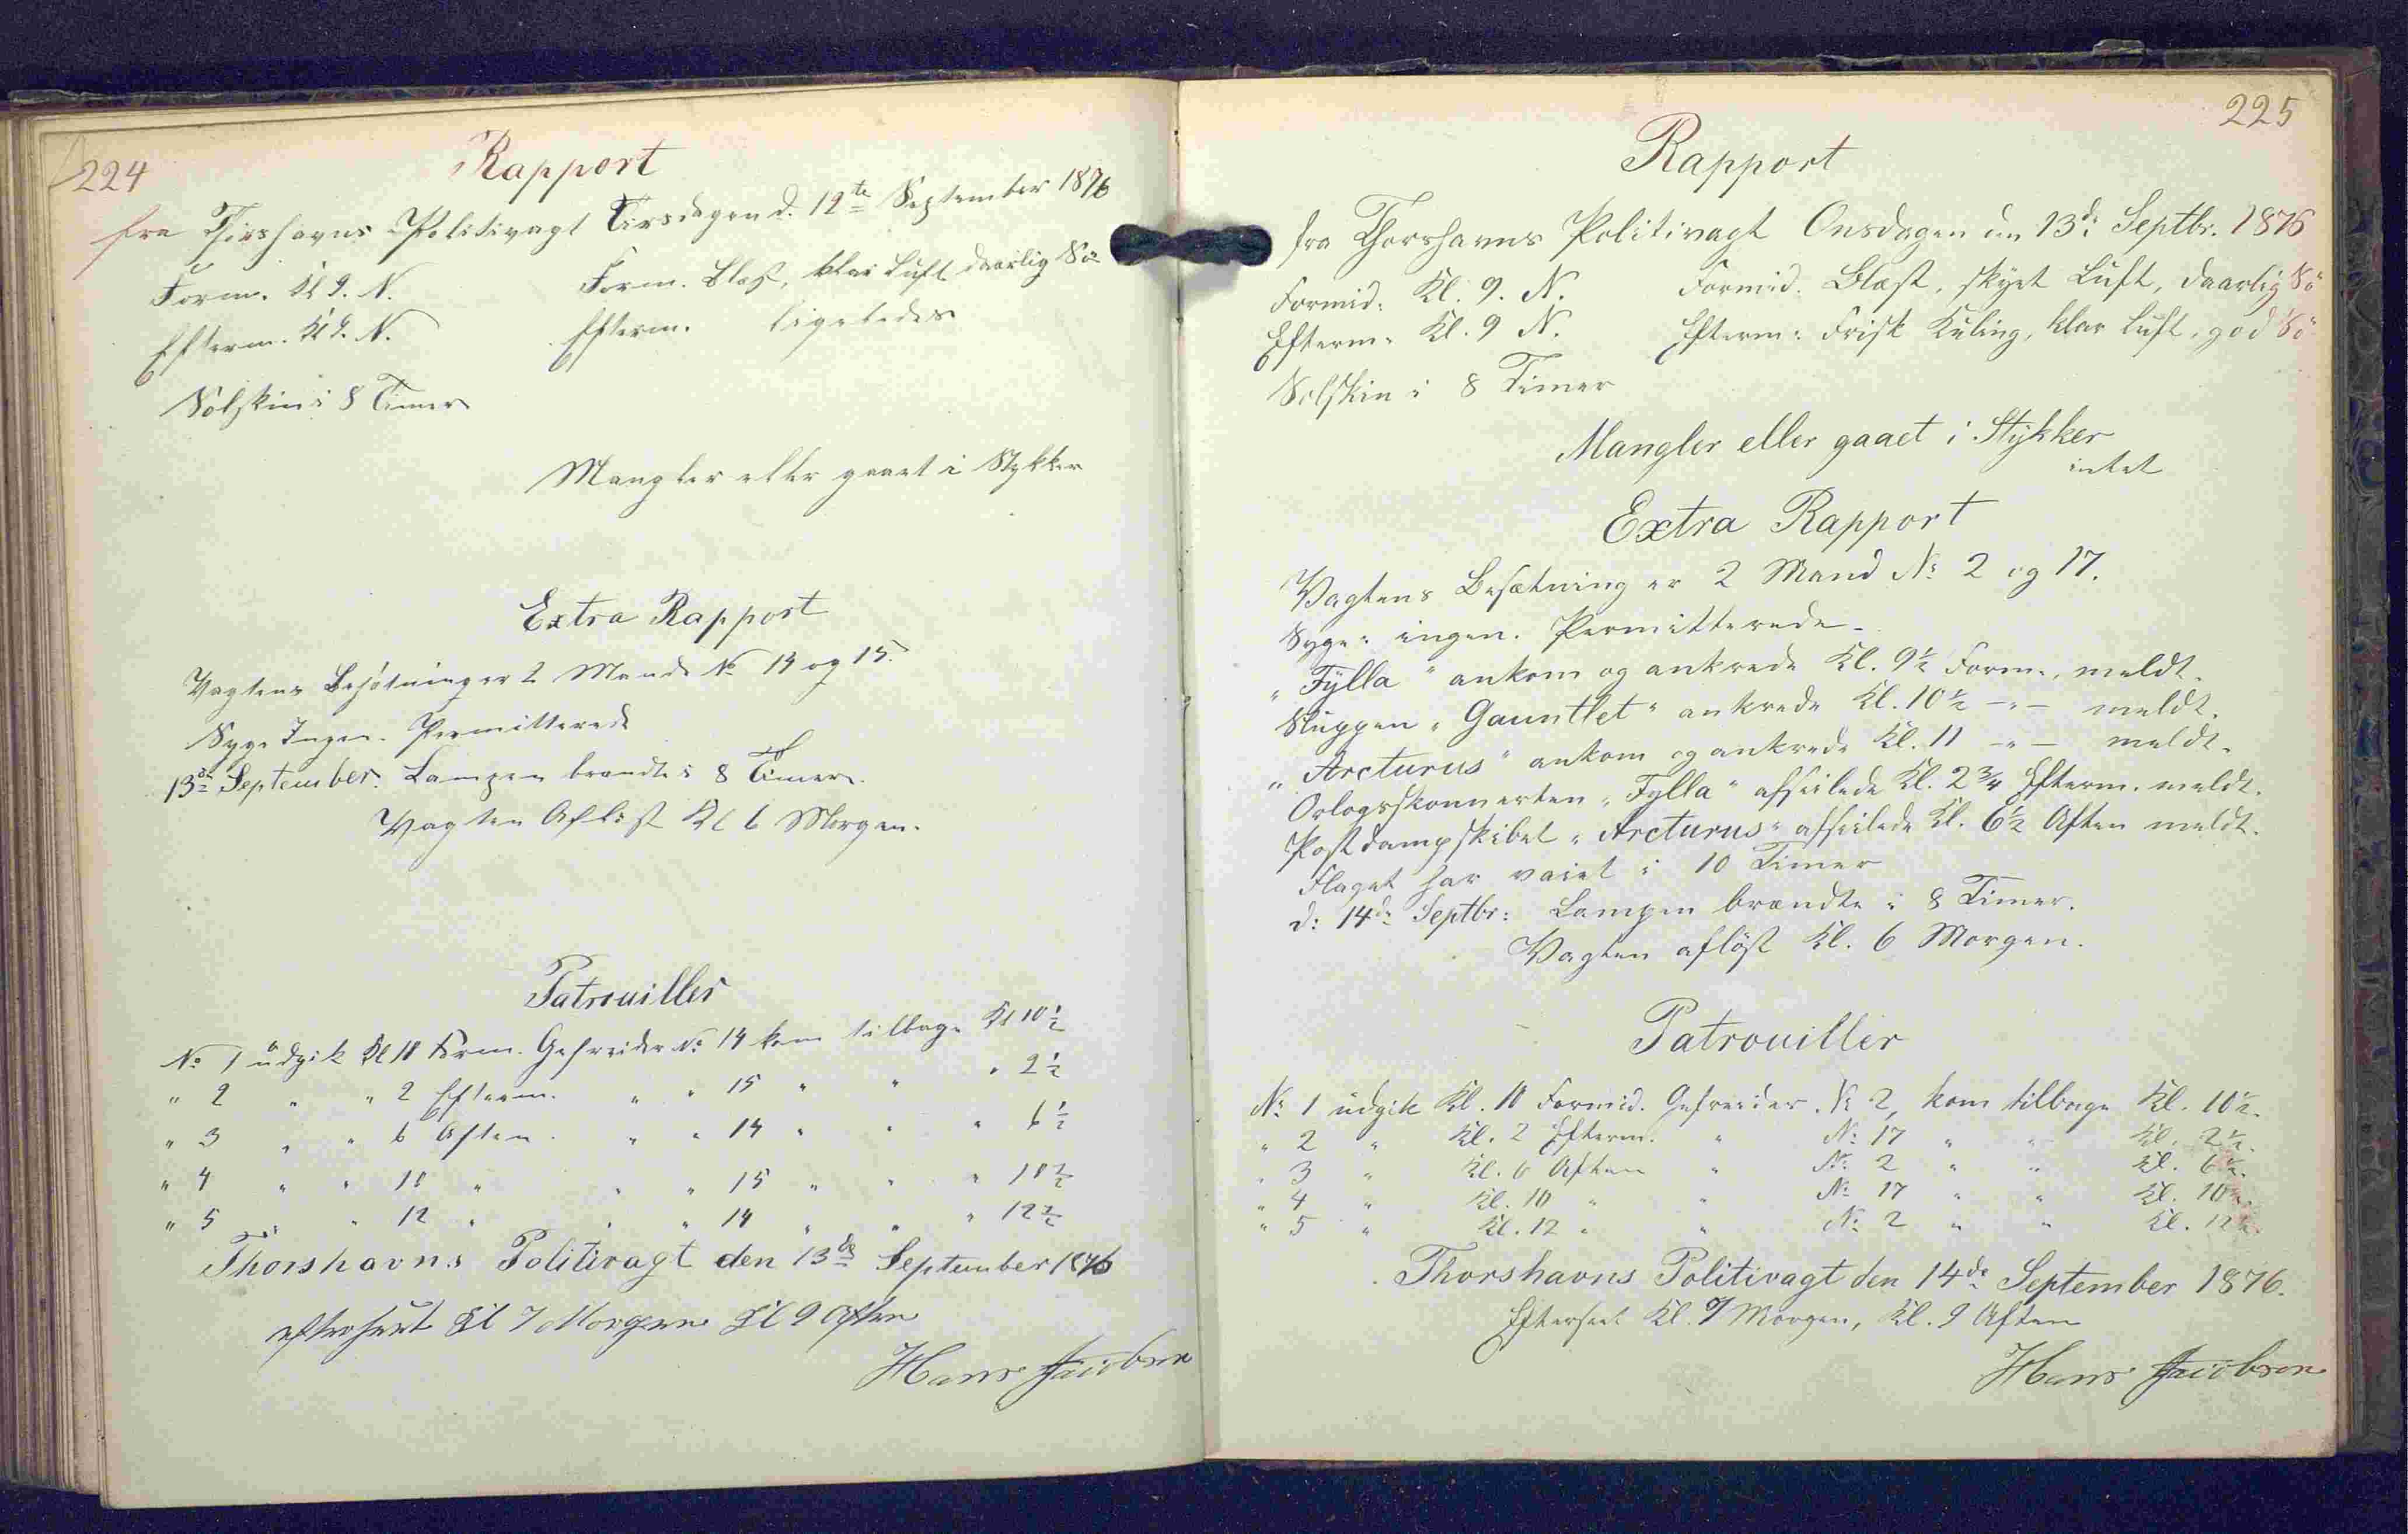 224
Rapport
fra Thorshavns Politivagt Tirsdagen d. 12te September 1876
Form. Kl 9. N. Form. Blæst, klar Luft daarlig Sö
Efterm. Kl 9. N. Efterm. ligeledes
Solskin i 8 Timer
Mangler eller gaaet i Stykker
Extra Rapport
Vagtens Besætning er 2 Mand No 14 og 15.
Syge Ingen. Permitterede
13de September. Lampen brændte i 8 Timer.
Vagten Aflöst Kl 6 Morgen.
Patrouiller
No 1 udgik Kl 10 Form. Gefreider No 14 kom tilbage Kl 10½
" 2 " " 2 Efterm. " " 15 " " " 2½
" 3 " " 6 Aften. " " 14 " " " 6½
" 4 " " 10 " " " 15 " " " 10½
" 5 " " 12 " " " 14 " " " 12½
Thorshavns Politivagt den 13de September 1876
efterseet Kl 7 Morgen Kl 9 Aften
Hans Jacobsen
225
Rapport
fra Thorshavns Politivagt Onsdagen den 13de Septbr. 1876
Formid: Kl. 9. N. Formid. Blæst, skyet Luft, daarlig Sö
Efterm: Kl. 9 N. Efterm: Frisk Kuling, klar Luft, god Sö
Solskin i 8 Timer
Mangler eller gaaet i Stykker
intet
Extra Rapport
Vagtens Besætning er 2 Mand No 2 og 17.
Syge: ingen. Permitterede -
"Fylla" ankom og ankrede Kl. 9½ Form., meldt.
Sluppen "Gauntlet" ankrede Kl. 10½ -"- meldt.
"Arcturus" ankom og ankrede Kl. 11 -"- meldt.
Orlogsskonnerten "Fylla" afseilede Kl. 2¾ Efterm. meldt.
Postdampskibet "Arcturus" afseilede Kl. 6½ Aften meldt.
Flaget har vaiet i 10 Timer
d: 14de Septbr: Lampen brændte i 8 Timer.
Vagten aflöst Kl. 6 Morgen.
Patrouiller
No 1 udgik Kl. 10 Formid. Gefreider No 2, kom tilbage Kl. 10½.
" 2 " Kl. 2 Efterm. " No 17 " " Kl. 2½.
" 3 " Kl. 6 Aften " No 2 " " Kl. 6½.
" 4 " Kl. 10 " " No 17 " " Kl. 10½.
" 5 " Kl. 12 " " No 2 " " Kl. 12½.
Thorshavns Politivagt den 14de September 1876.
Efterseet Kl. 7 Morgen, Kl. 9 Aften
Hans Jacobsen